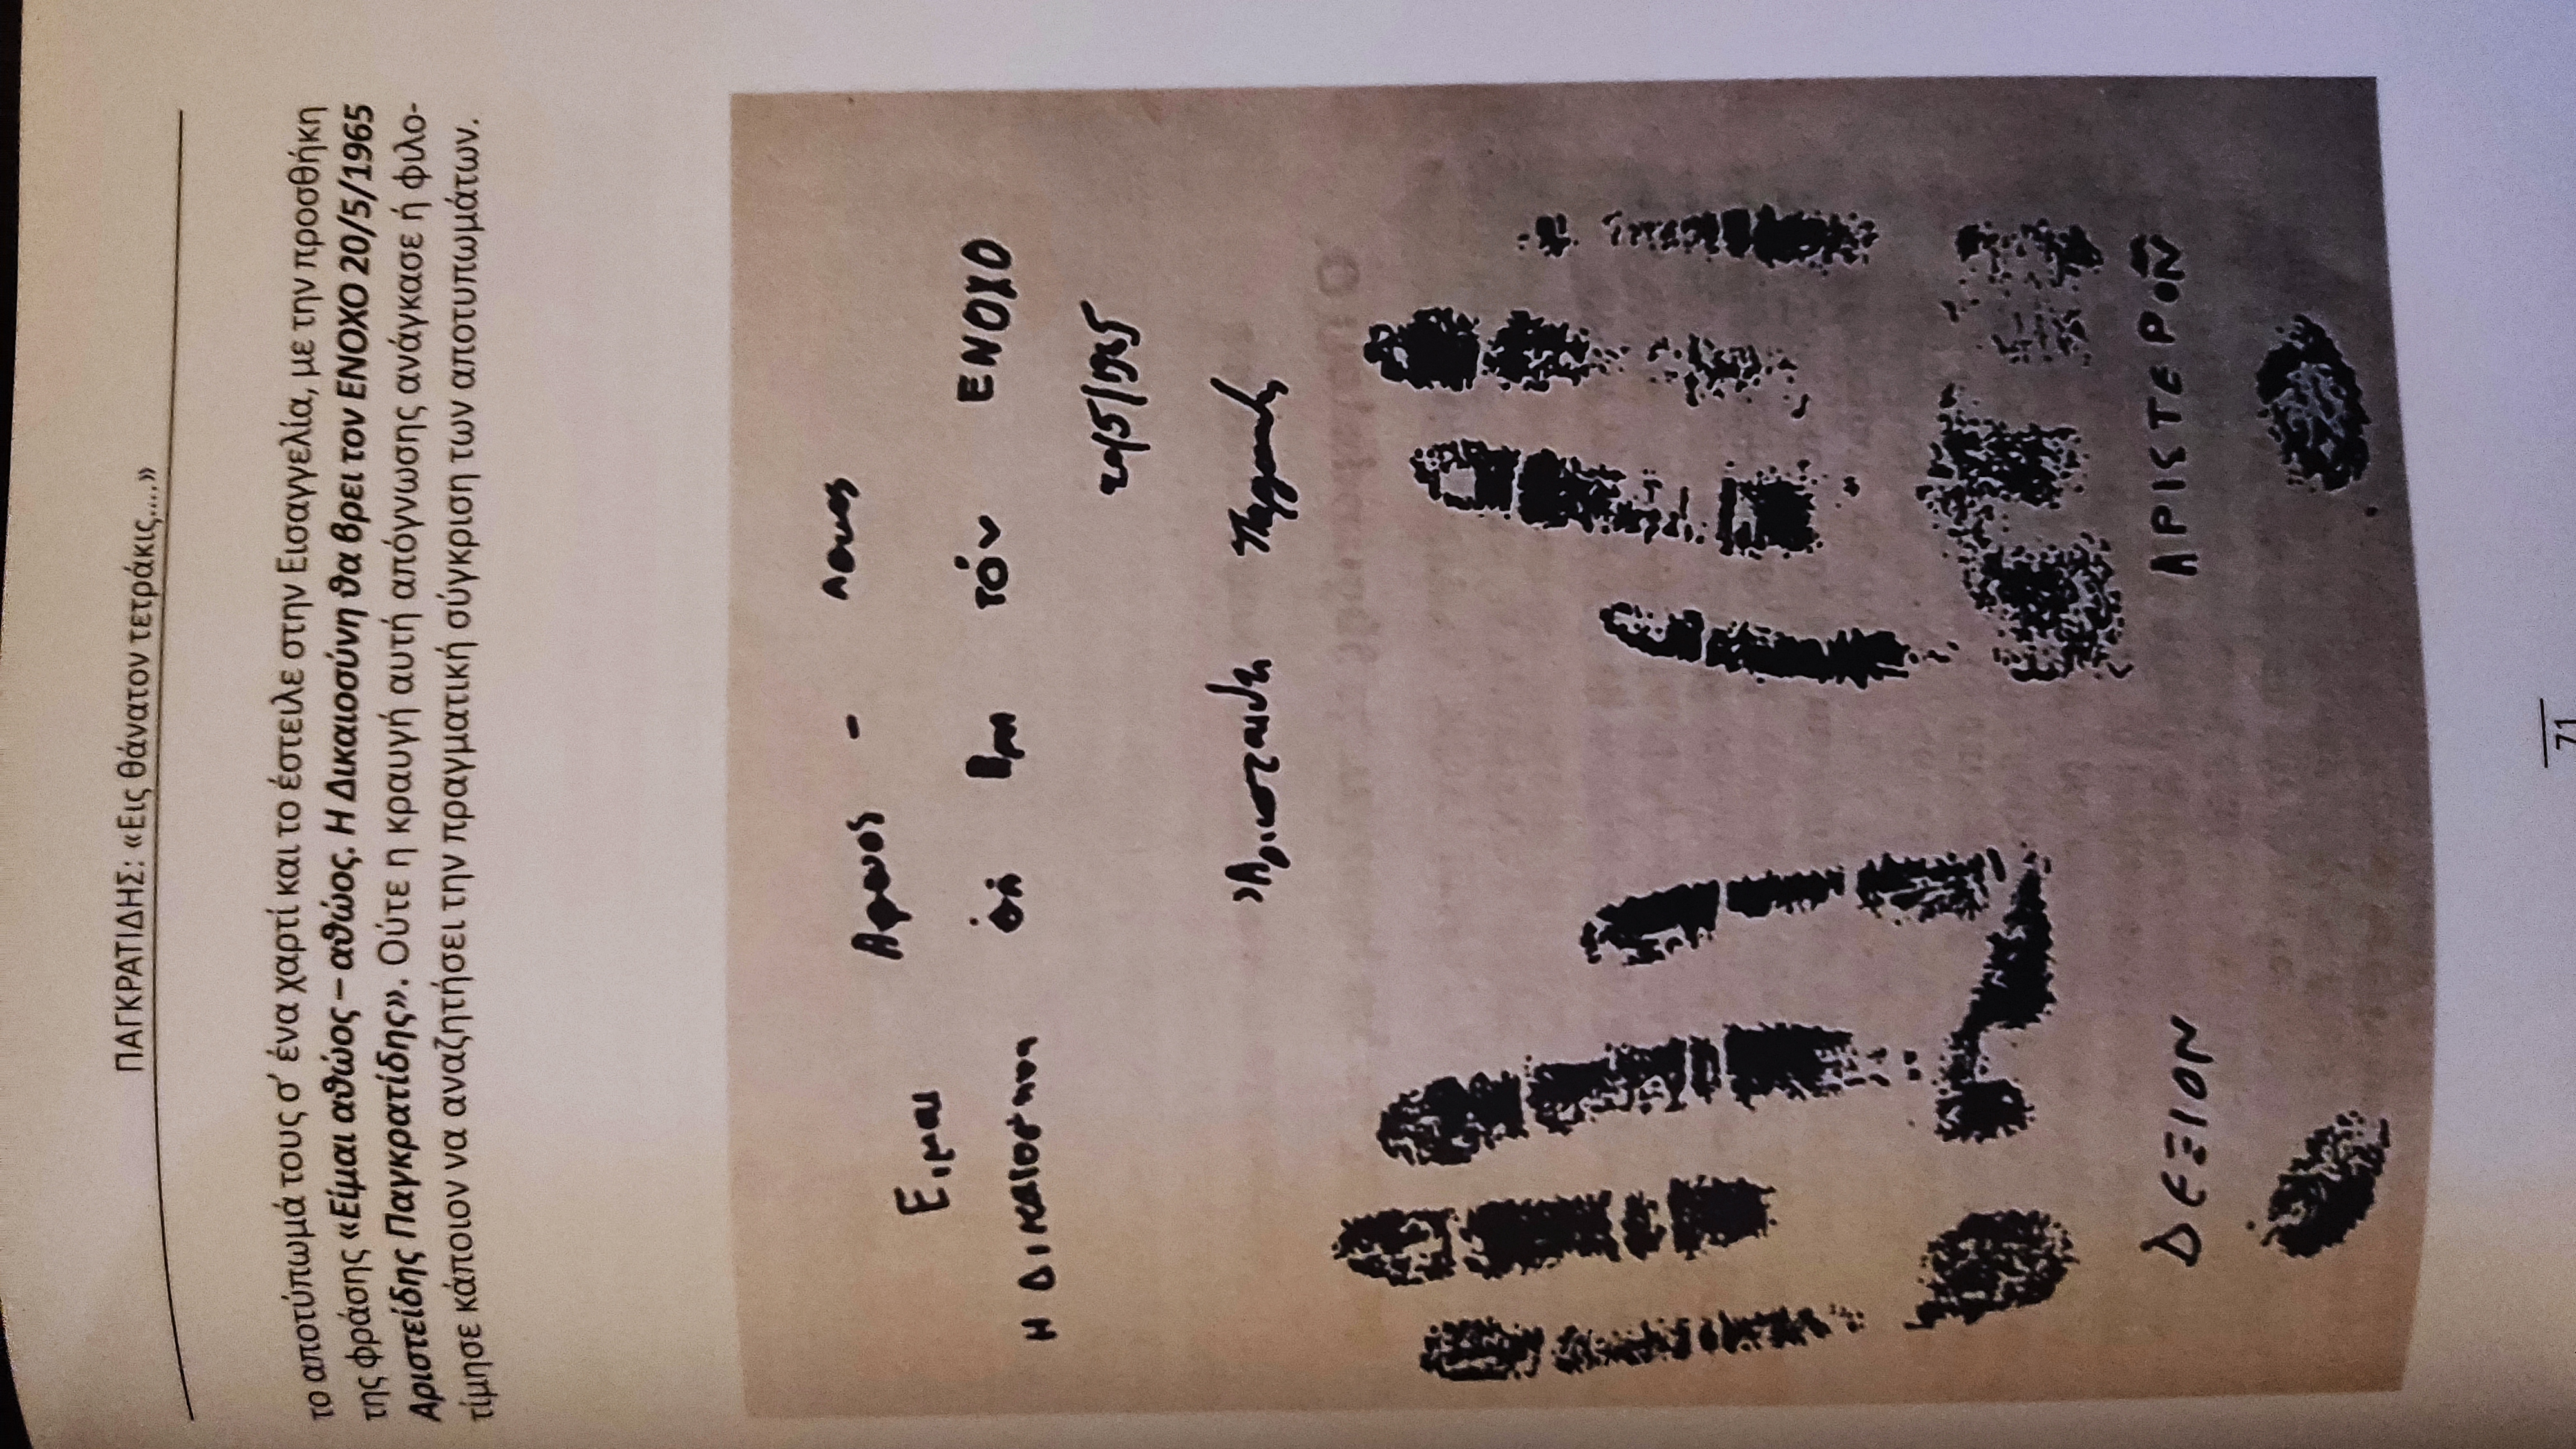 ΠΑΓΚΡΑΤΙΔΗΣ: «Εις θάνατον τετράκις....»
το αποτύπωμά τους σ' ένα χαρτί και το έστειλε στην Εισαγγελία, με την προσθήκη
της φράσης «Είμαι αθώος – αθώος. Η Δικαιοσύνη θα βρει τον ΕΝΟΧΟ 20/5/1965
Αριστείδης Παγκρατίδης». Ούτε η κραυγή αυτή απόγνωσης ανάγκασε ή φιλο-
τίμησε κάποιον να αναζητήσει την πραγματική σύγκριση των αποτυπωμάτων.
Ειμαι
Η ΤΌΝ ΕΝΟΧΟ
ΔΕΞΙΟΝ ΑΡΙΣΤΕΡΟΝ
71